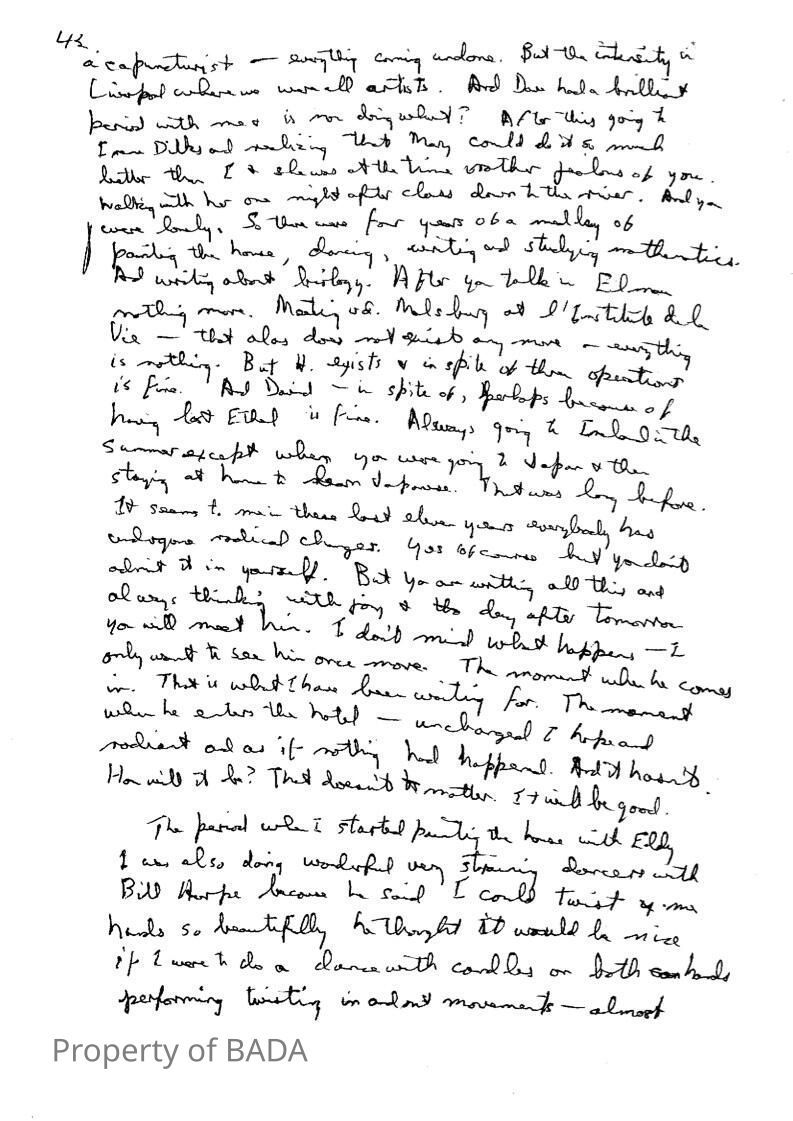 43.
acapuncturist — everything coming undone. But the intensity in
Liverpool where we were all artists. And Dave had a brilliant
period with me & is now doing what? After this going to
Irene Dilks and realizing that Mary could do it so much
better than I & she was at the time rather jealous of you.
Walking with her one night after class down to the river. And you
were lonely. So there were four years of a medley of
painting the house, dancing, writing and studying mathematics.
And writing about biology. After your talk in Elmau
nothing more. Meeting v.d. Malsburg at l'Institute de la
Vie — that alas does not exist any more — everything
is nothing. But H. exists & in spite of three operations
is fine. And David — in spite of, perhaps because of
having lost Ethel is fine. Always going to Ireland in the
Summer except when you were going to Japan & then
staying at home to learn Japanese. That was long before.
It seems to me in these last eleven years everybody has
undergone radical changes. Yes of course but you don't
admit it in yourself. But you are writing all this and
always thinking with joy & the day after tomorrow
you will meet him. I don't mind what happens — I
only want to see him once more. The moment when he comes
in. That is what I have been waiting for. The moment
when he enters the hotel — unchanged I hope and
radiant and as if nothing had happened. And it hasn't.
How will it be? That doesn't matter. It will be good.
The period when I started painting the house with Eddy
I was also doing wonderful very straining dances with
Bill Harpe because he said I could twist my
hands so beautifully he thought it would be nice
if I were to do a dance with candles on both hands
performing twisting in and out movements — almost
Property of BADA